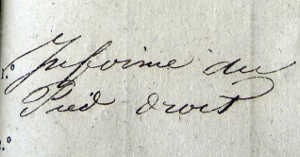 Infirme du
Pied droit